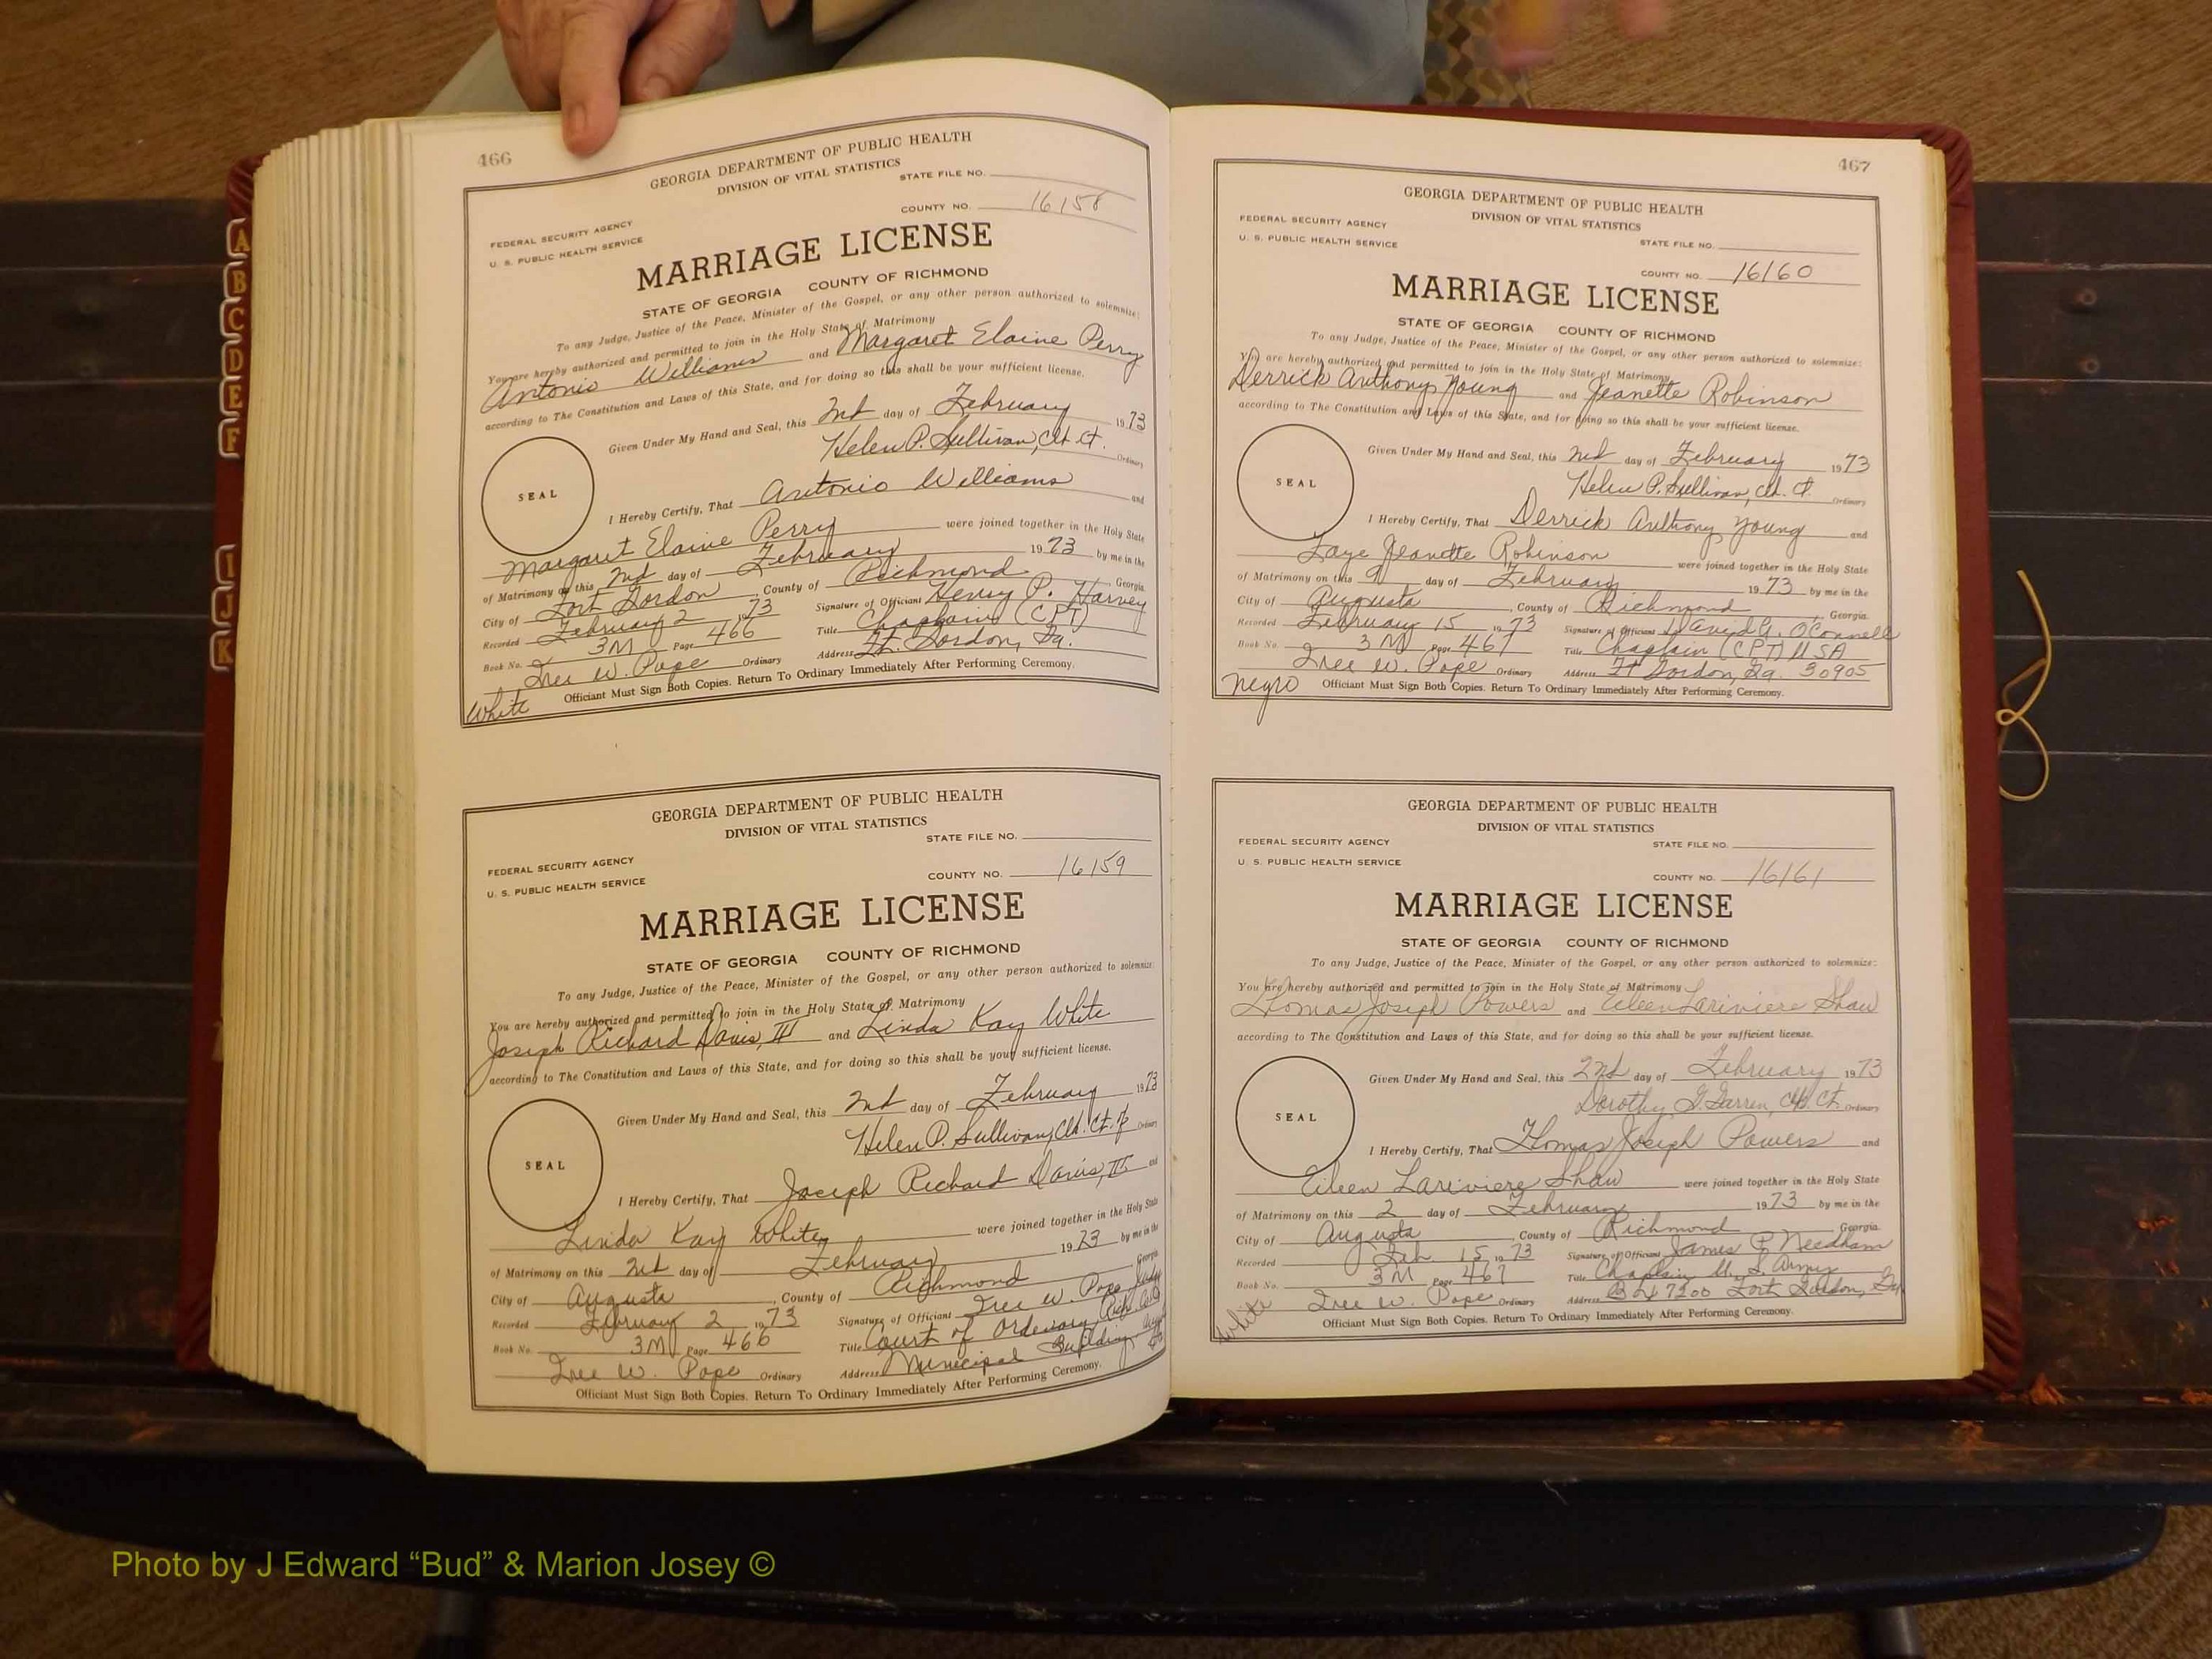 466
GEORGIA DEPARTMENT OF PUBLIC HEALTH
DIVISION OF VITAL STATISTICS
STATE FILE NO.
COUNTY NO. 16158
FEDERAL SECURITY AGENCY
U. S. PUBLIC HEALTH SERVICE
MARRIAGE LICENSE
STATE OF GEORGIA COUNTY OF RICHMOND
To any Judge, Justice of the Peace, Minister of the Gospel, or any other person authorized to solemnize:
You are hereby authorized and permitted to join in the Holy State of Matrimony
Antonio Williams and Margaret Elaine Perry
according to The Constitution and Laws of this State, and for doing so this shall be your sufficient license.
Given Under My Hand and Seal, this 2nd day of February 1973
Helen P. Sullivan, Clk. Ct. Ordinary
SEAL
I Hereby Certify, That Antonio Williams and
Margaret Elaine Perry were joined together in the Holy State
of Matrimony on this 2nd day of February 1973 by me in the
City of Fort Gordon, County of Richmond Georgia
Recorded February 2 1973 Signature of Officiant Henry P. Harvey
Book No. 3M Page 466 Title Chaplain (CPT)
Iree W. Pope Ordinary Address Ft. Gordon, Ga.
Officiant Must Sign Both Copies. Return To Ordinary Immediately After Performing Ceremony.
White
GEORGIA DEPARTMENT OF PUBLIC HEALTH
DIVISION OF VITAL STATISTICS
STATE FILE NO.
FEDERAL SECURITY AGENCY
U. S. PUBLIC HEALTH SERVICE
COUNTY NO. 16159
MARRIAGE LICENSE
STATE OF GEORGIA COUNTY OF RICHMOND
To any Judge, Justice of the Peace, Minister of the Gospel, or any other person authorized to solemnize:
You are hereby authorized and permitted to join in the Holy State of Matrimony
Joseph Richard Davis, III and Linda Kay White
according to The Constitution and Laws of this State, and for doing so this shall be your sufficient license.
Given Under My Hand and Seal, this 2nd day of February 1973
Helen P. Sullivan, Clk. Ct. Ordinary
SEAL
I Hereby Certify, That Joseph Richard Davis, III and
Linda Kay White were joined together in the Holy State
of Matrimony on this 2nd day of February 1973 by me in the
City of Augusta, County of Richmond Georgia
Recorded February 2 1973 Signature of Officiant Iree W. Pope
Book No. 3M Page 466 Title Court of Ordinary
Iree W. Pope Ordinary Address Municipal Building
Officiant Must Sign Both Copies. Return To Ordinary Immediately After Performing Ceremony.
467
GEORGIA DEPARTMENT OF PUBLIC HEALTH
DIVISION OF VITAL STATISTICS
FEDERAL SECURITY AGENCY
U. S. PUBLIC HEALTH SERVICE
STATE FILE NO.
COUNTY NO. 16160
MARRIAGE LICENSE
STATE OF GEORGIA COUNTY OF RICHMOND
To any Judge, Justice of the Peace, Minister of the Gospel, or any other person authorized to solemnize:
You are hereby authorized and permitted to join in the Holy State of Matrimony
Derrick Anthony Young and Jeanette Robinson
according to The Constitution and Laws of this State, and for doing so this shall be your sufficient license.
Given Under My Hand and Seal, this 2nd day of February 1973
Helen P. Sullivan, Clk. Ct. Ordinary
SEAL
I Hereby Certify, That Derrick Anthony Young and
Faye Jeanette Robinson were joined together in the Holy State
of Matrimony on this 9 day of February 1973 by me in the
City of Augusta, County of Richmond, Georgia.
Recorded February 15 1973 Signature of Officiant David G. OConnell
Book No. 3M Page 467 Title Chaplain (CPT) USA
Iree W. Pope Ordinary Address Ft Gordon, Ga. 30905
Negro Officiant Must Sign Both Copies. Return To Ordinary Immediately After Performing Ceremony.
GEORGIA DEPARTMENT OF PUBLIC HEALTH
DIVISION OF VITAL STATISTICS
FEDERAL SECURITY AGENCY
STATE FILE NO.
U. S. PUBLIC HEALTH SERVICE
COUNTY NO. 16161
MARRIAGE LICENSE
STATE OF GEORGIA COUNTY OF RICHMOND
To any Judge, Justice of the Peace, Minister of the Gospel, or any other person authorized to solemnize:
You are hereby authorized and permitted to join in the Holy State of Matrimony
Thomas Joseph Powers and Eileen Lariviere Shaw
according to The Constitution and Laws of this State, and for doing so this shall be your sufficient license.
Given Under My Hand and Seal, this 2nd day of February 1973
Dorothy Clk. Ct. Ordinary
SEAL
I Hereby Certify, That Thomas Joseph Powers and
Eileen Lariviere Shaw were joined together in the Holy State
of Matrimony on this 2 day of February 1973 by me in the
City of Augusta, County of Richmond Georgia
Recorded Feb 15 1973 Signature of Officiant James P Needham
Book No. 3M Page 467 Title Chaplain U. S. Army
Iree W. Pope Ordinary Address Box 7200 Fort Gordon, Ga
White
Officiant Must Sign Both Copies. Return To Ordinary Immediately After Performing Ceremony.
A
B
C
D
E
F
I
J
K
Photo by J Edward “Bud” & Marion Josey ©